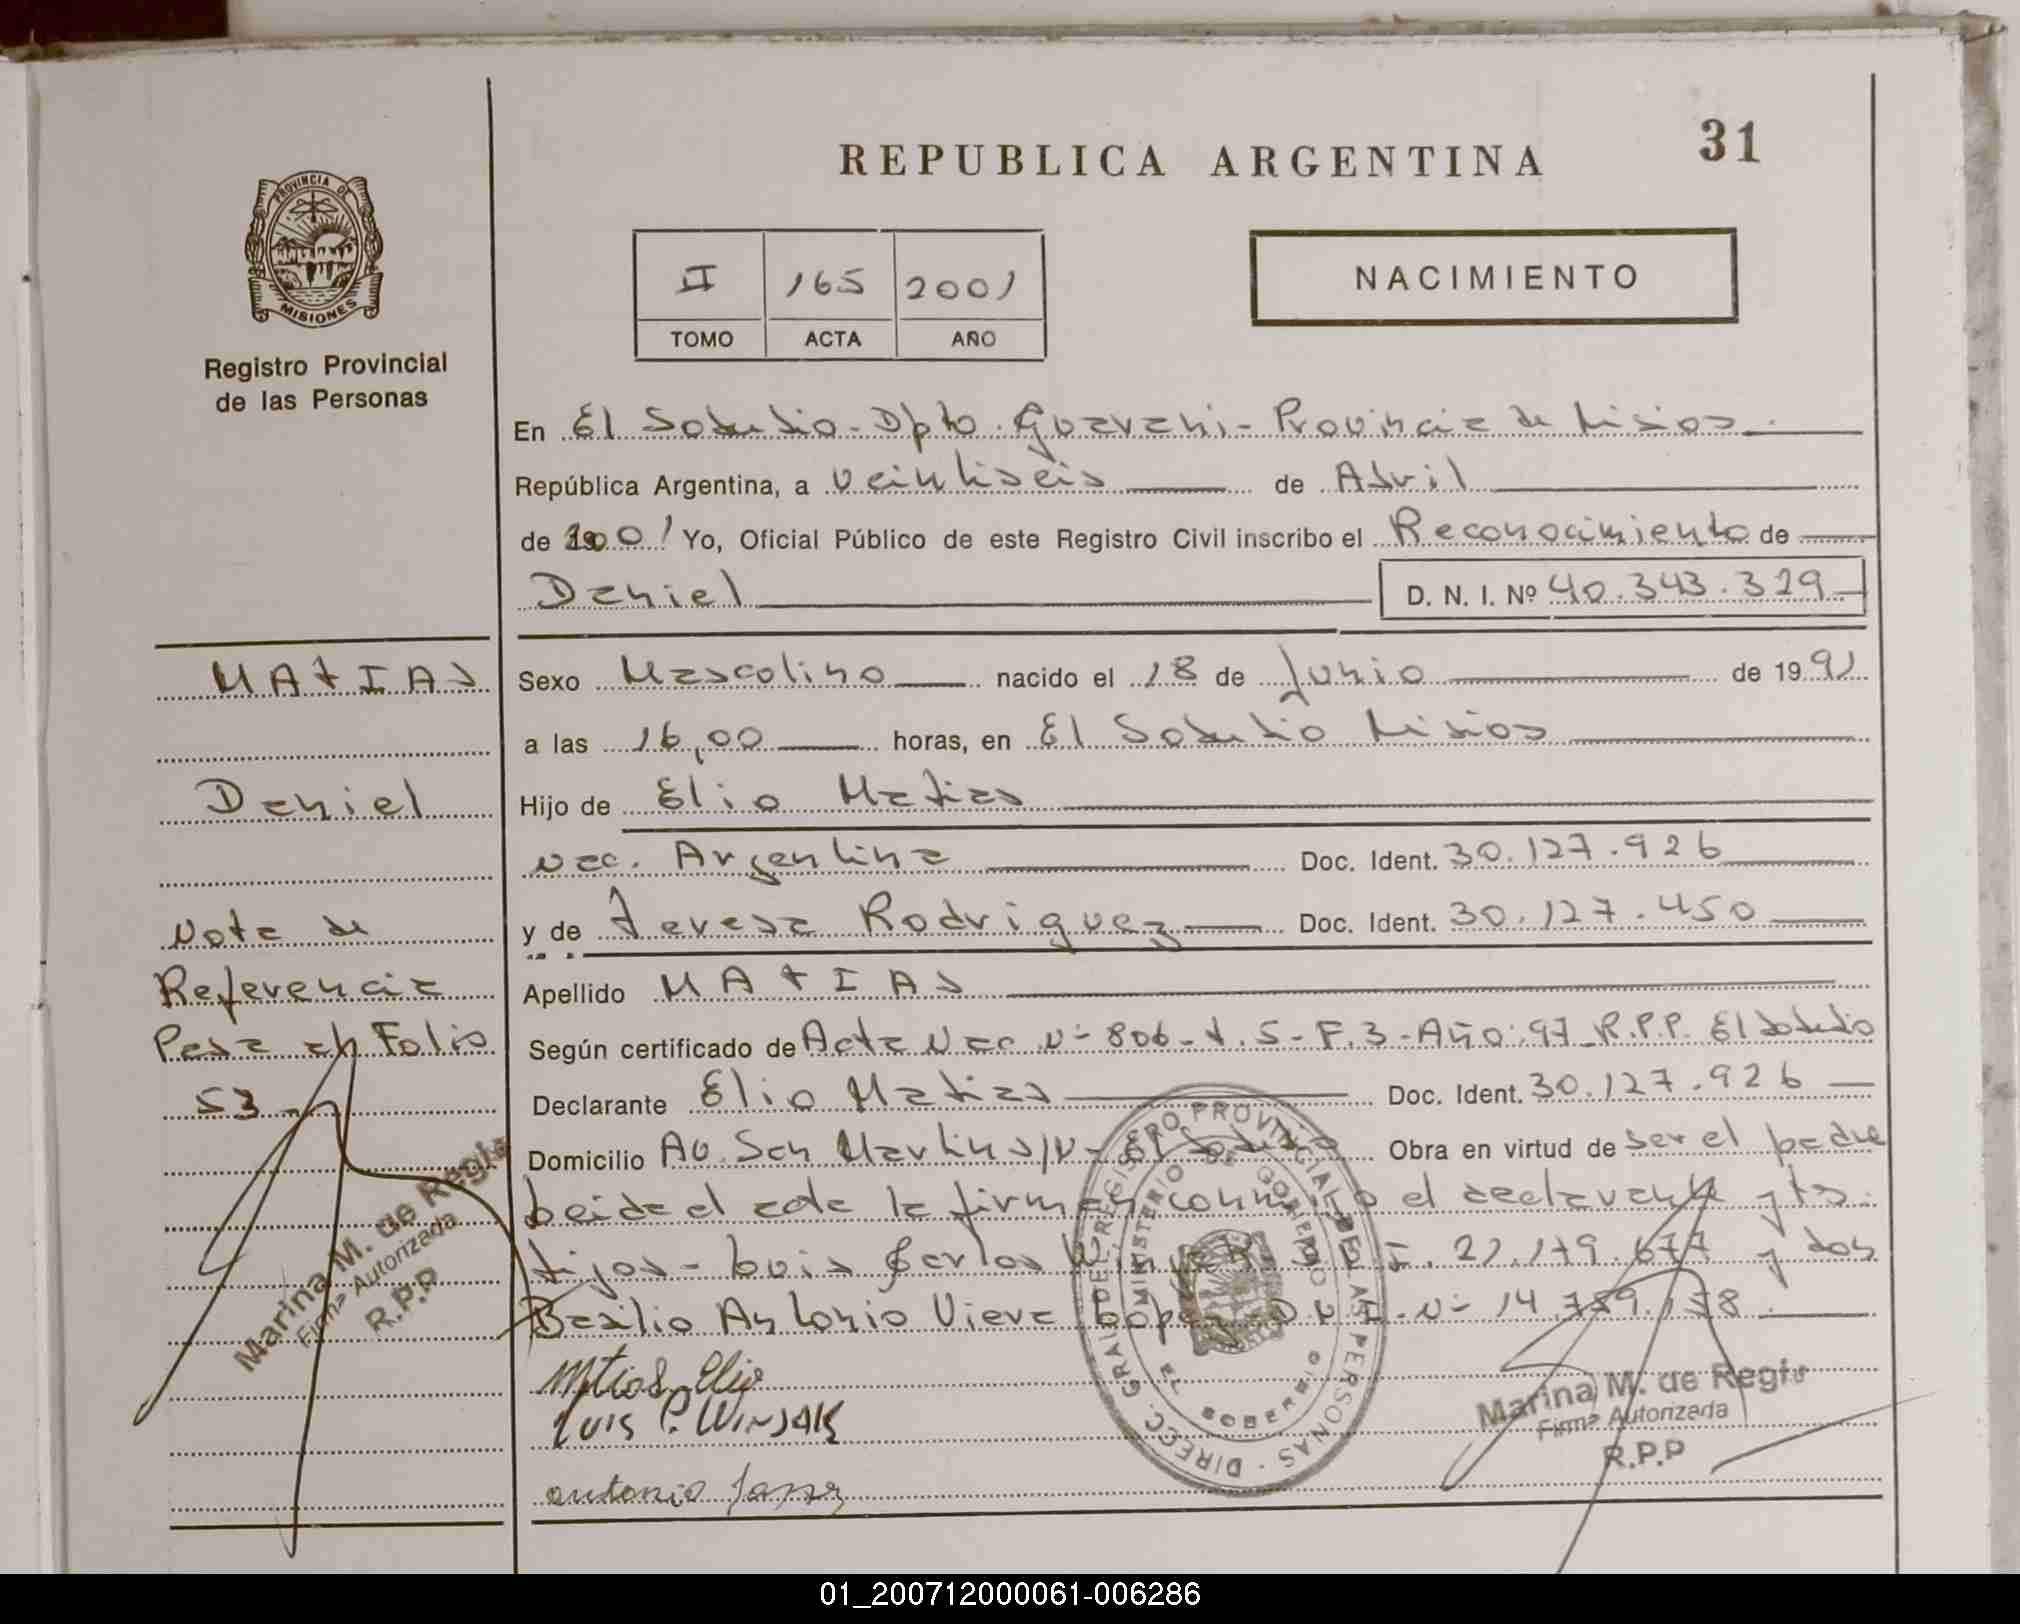 REPUBLICA ARGENTINA
31
PROVINCIA DE
MISIONES
Registro Provincial
de las Personas
II 165 2001
TOMO ACTA AÑO
NACIMIENTO
En El Soberbio - Dpto. Guarani - Provincia de Misiones
República Argentina, a veintiseis de Abril
de 2001 Yo, Oficial Público de este Registro Civil inscribo el Reconocimiento de
Daniel D. N. I. Nº 40.343.329
MATIAS
Daniel
Nota de
Referencia
Pasa en Folio
53
Sexo Masculino nacido el 18 de Junio de 1991
a las 16,00 horas, en El Soberbio Misiones
Hijo de Elio Matias
Nac. Argentina Doc. Ident. 30.127.926
y de Teresa Rodriguez Doc. Ident. 30.127.450
Apellido MATIAS
Según certificado de Acta Nac. Nº 806 - T. 5 - F. 3 - Año: 97 - R.P.P. El Soberbio
Declarante Elio Matias Doc. Ident. 30.127.926
Domicilio Av. San Martin s/Nº El Soberbio Obra en virtud de ser el padre
Leida el acta la firman conmigo el declarante y tes-
tigos - Luis Carlos D.N.I. 21.179.677 y don
Basilio Antonio Viera Lopez D.N.I. Nº 14.789.158
Matias Elio
Luis C.
antonio
DIRECC. GRAL. DEL REGISTRO PROVINCIAL DE LAS PERSONAS
MINISTERIO DE GOBIERNO
SOBERBIO
Marina M. de Regis
Firma Autorizada
R.P.P
Marina M. de Regis
Firma Autorizada
R.P.P
01_200712000061-006286